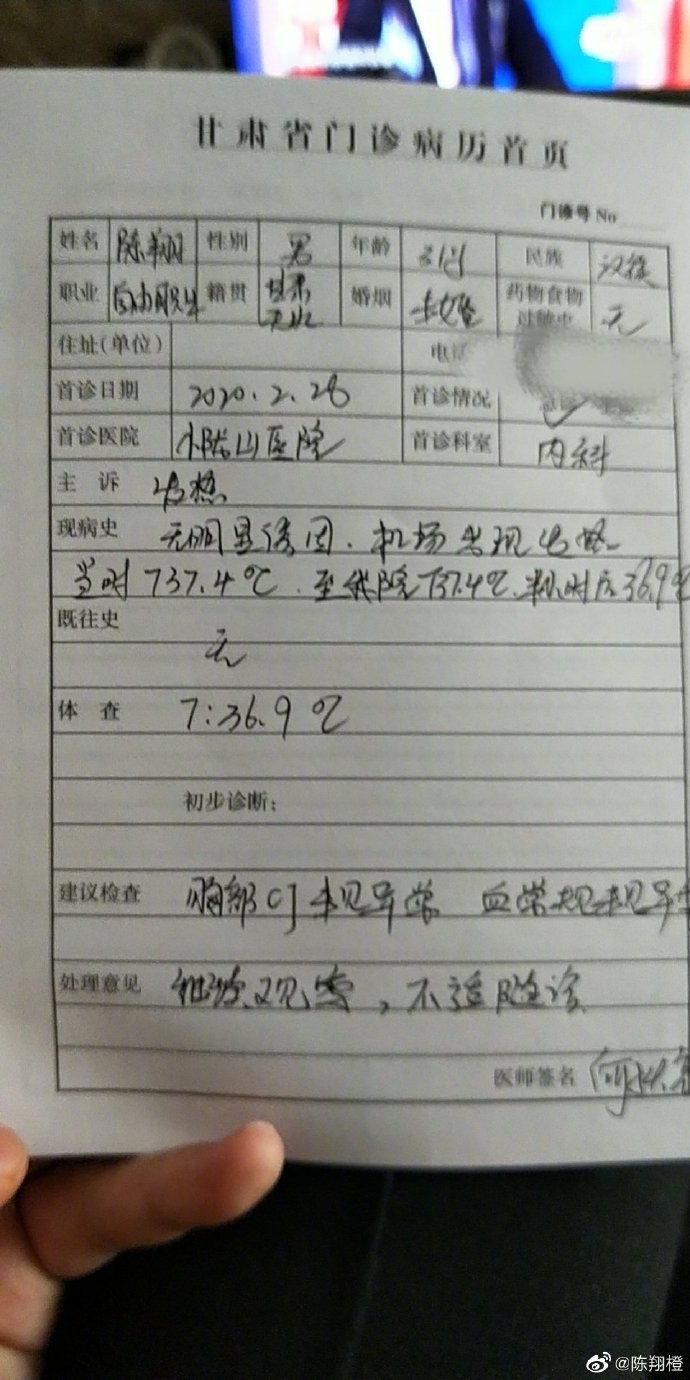 甘肃省门诊病历首页
门诊号 No
姓名 陈翔 性别 男 年龄 民族 汉族
职业 自由职业 籍贯 甘肃天水 婚烟 未婚 药物食物过敏史 无
住址(单位) 电话
首诊日期 2020.2.28 首诊情况 急诊
首诊医院 小陇山医院 首诊科室 内科
主 诉 发热
现病史 无明显诱因.机场发现发热
当时T37.4℃.至我院T37.4℃.半小时后36.9℃
既往史
无
体 查 T:36.9℃
初步诊断:
建议检查 胸部CT未见异常 血常规未见异常
处理意见 继续观察,不适随诊
医师签名
@陈翔橙